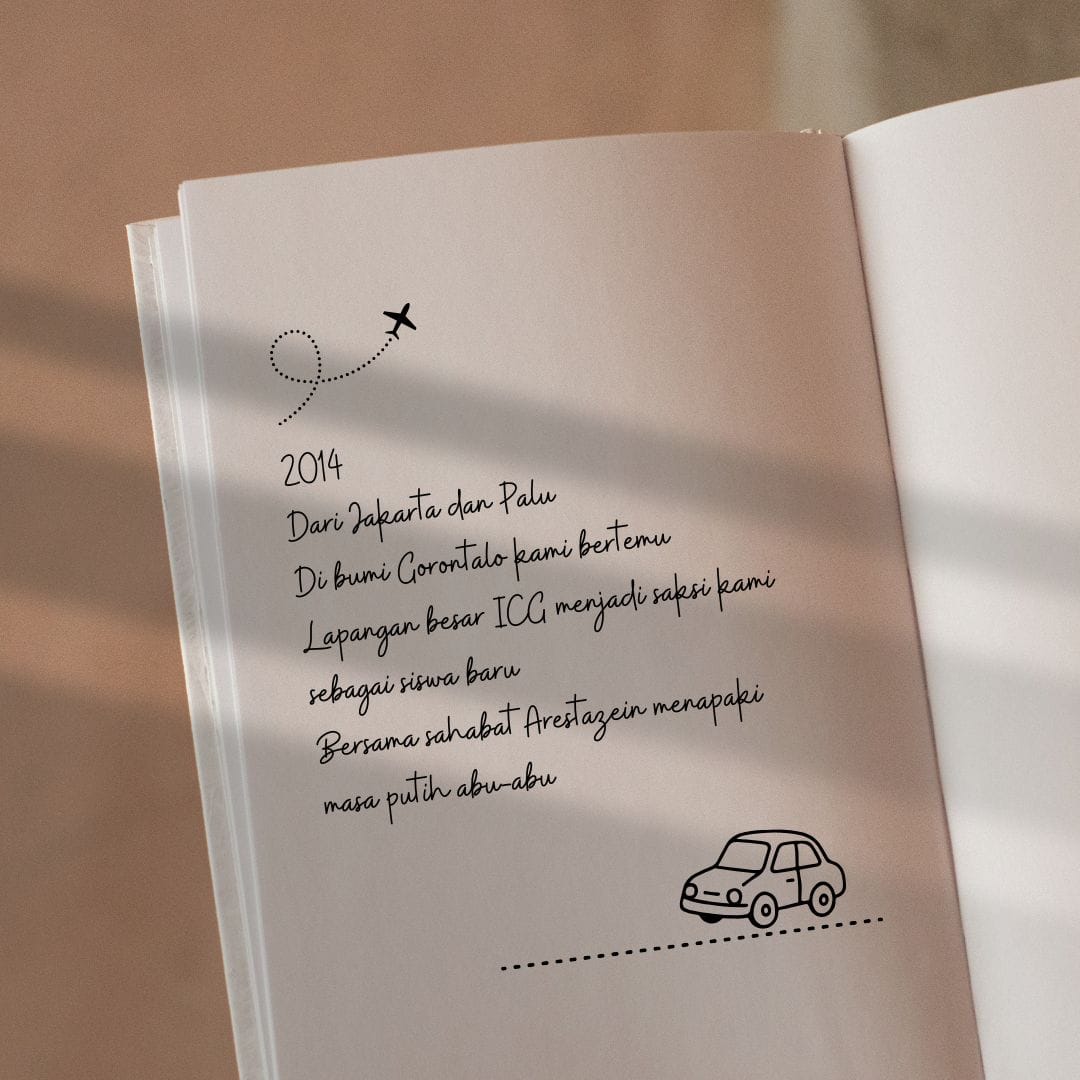 2014
Dari Jakarta dan Palu
Di bumi Gorontalo kami bertemu
Lapangan besar ICG menjadi saksi kami
sebagai siswa baru
Bersama sahabat Arestazein menapaki
masa putih abu-abu